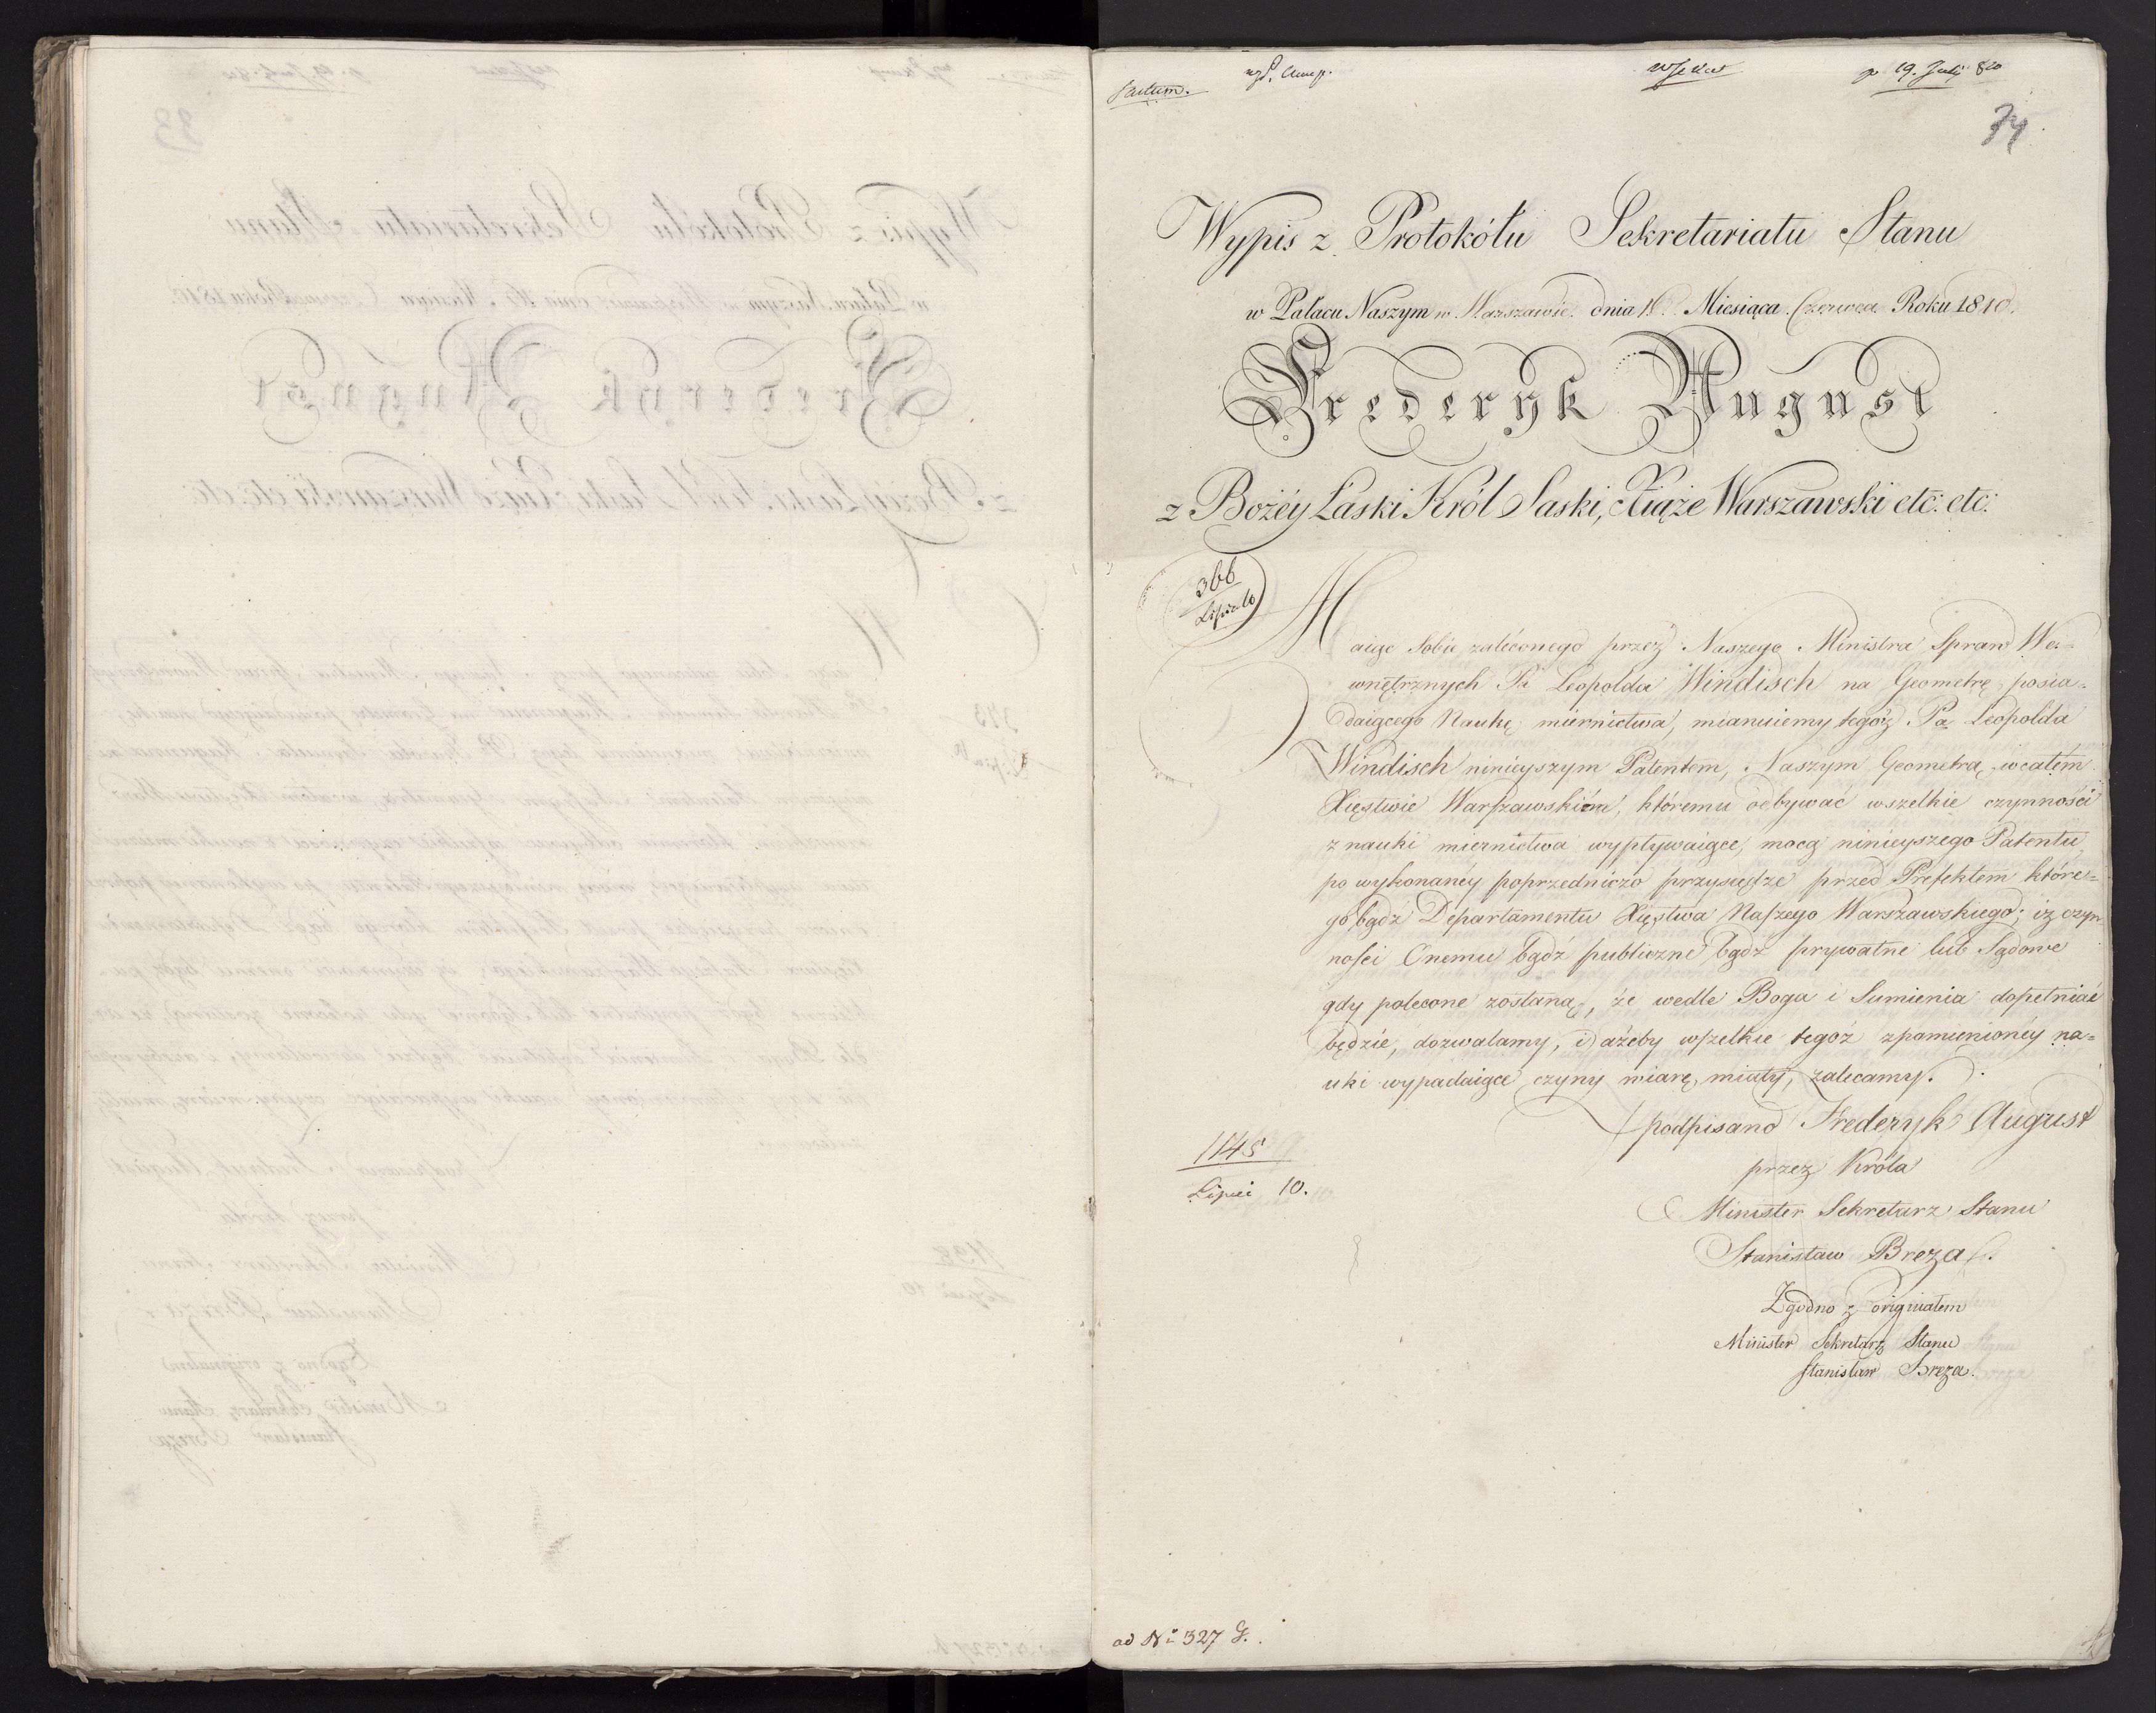 factum.
19. Julij 810
34
Wypis z Protokółu Sekretariatu Stanu
w Pałacu Naszym w Warszawie dnia 16. Miesiąca Czerwca Roku 1810.
Frederyk August
z Bożéy Łaski Król Saski, Xiąże Warszawski etc: etc:
366
Lipca 10
Maiąc sobie zaléconego przez Naszego Ministra Spraw We-
wnętrznych Pa Leopolda Windisch na Geometrę, posia-
daiącego Naukę miernictwa, mianuiemy tegoż Pa Leopolda
Windisch ninieyszym Patentem, Naszym Geometrą, w całém
Xięstwie Warszawskiém, któremu odbywać wszelkie czynności
z nauki miernictwa wypływaiące, mocą ninieyszego Patentu,
po wykonanéy poprzedniczo przysiędze przed Prefektem które-
go bądź Départamentu Xięstwa Naszego Warszawskiego; iż czyn-
ności Onemu bądź publiczne bądź prywatne lub Sądowe
gdy polecone zostaną, że wedle Boga i Sumienia dopełniać
będzie, dozwalamy, i ażeby wszelkie tegoż zpomienionéy na-
uki wypadaiące czyny wiarę miały, zalecamy.
podpisano Frederyk August
przez Króla
1145
Lipiec 10.
Minister Sekretarz Stanu
Stanisław Breza
Zgodno z originałem
Minister Sekretarz Stanu
Stanisław Breza.
ad No 327 G.